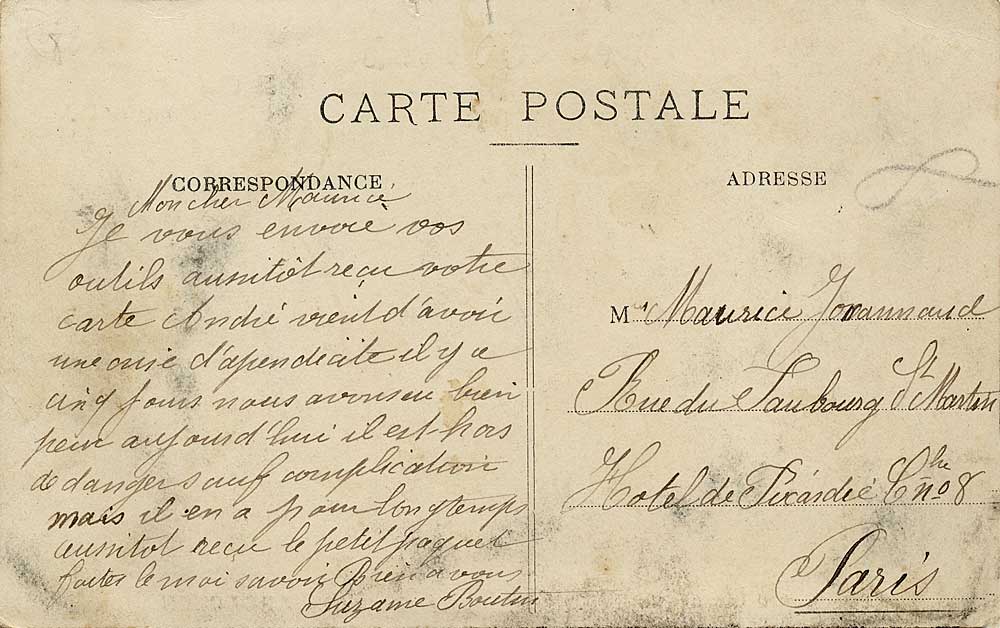 CARTE POSTALE
CORRESPONDANCE
Mon cher Maurice
Je vous envoie vos
outils aussitôt reçu votre
carte André vient d'avoir
une crise d'apendicite il y a
cinq jours nous avons eu bien
peur aujourd'hui il est hors
de danger sauf complication
mais il en a pour longtemps
aussitot reçu le petit paquet
faites le moi savoir Bien a vous
Suzanne Boutin
ADRESSE
M Maurice
Rue du Faubourg St Martin
Hotel de Picardie Che no 8
Paris